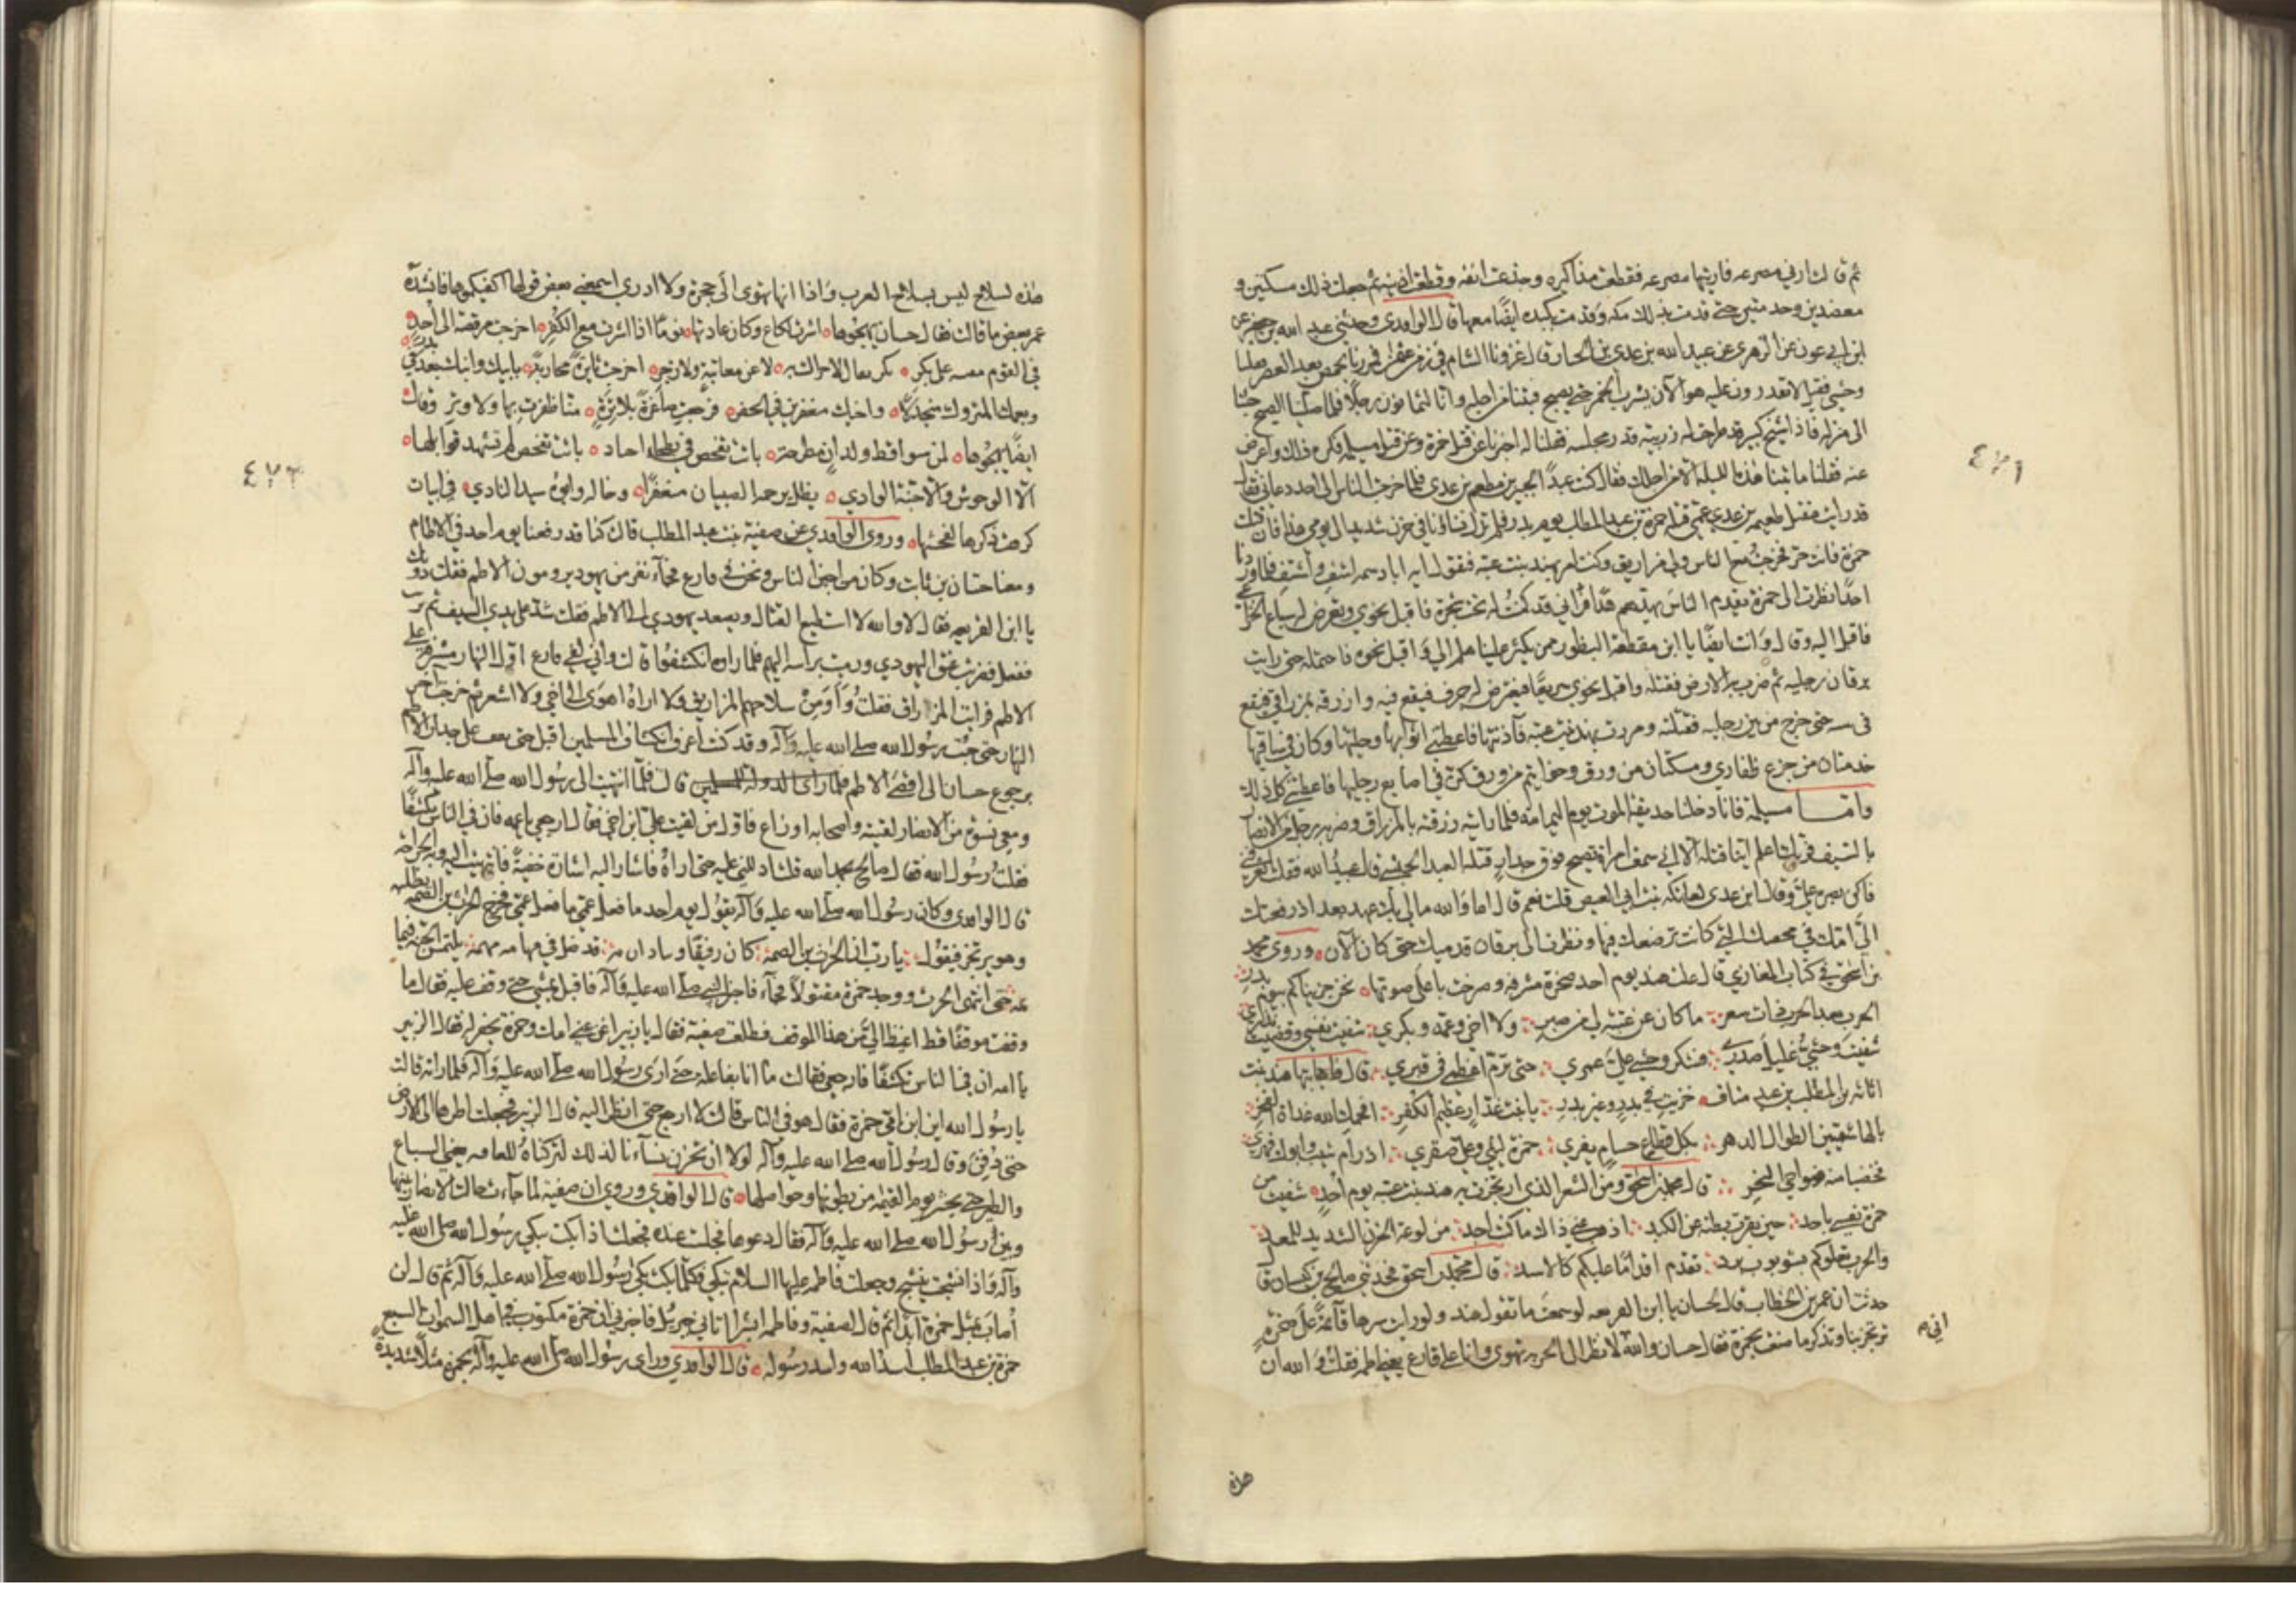 ٤٧١
ثم قالت ارني مصرعه فاريتها مصرعه فقطعت مذاكيره وجدعت انفه وقطعت اذنيه ثم جعلت ذلك مسكتين و
معضدين وخدمتين حتى قدمت بذلك مكة وقدمت بكبده ايضًا معها قال الواقدي وحدثني عبد الله بن جعفر عن
ابن ابي عون عن الزهري عن عبيد الله بن عدي بن الخيار قال غزونا الشام في زمن عثمن فمررنا بحمص بعد العصر فقلنا
وحشي فقيل لا تقدرون عليه هو الآن يشرب الخمر حتى يصبح فبتنا من اجله وانا لثمانون رجلًا فلما صلينا الصبح جئنا
الى منزله فاذا شيخ كبير قد طرحت له زربية قدر مجلسه فقلنا له اخبرنا عن قتل حمزة وعن قتل مسيلمة فكره ذلك واعرض
عنه فقلنا ما بتنا هذه الليلة الا من اجلك فقال كنت عبدًا لجبير بن مطعم بن عدي فلما خرج الناس الى احد دعاني فقال
قد رايت مقتل طعيمة بن عدي عمي قتله حمزة بن عبد المطلب يوم بدر فلم تزل نساؤنا في حزن شديد الى يومي هذا فان قتلت
حمزة فانت حر فخرجت مع الناس ولي مزاريق وكنت امر بهند بنت عتبة فتقول ايه ابا دسمة اشف واشتف فلما وردنا
احدًا نظرت الى حمزة يقدم الناس يهدهم هدًا فرآني وقد كمنت له تحت شجرة فاقبل نحوي وتعرض له سباع الخزاعي
فاقبل اليه وقال وانت ايضًا يا ابن مقطعة البظور ممن يكثر علينا هلم الي واقبل نحوه فاحتمله حتى رايت
برقان رجليه ثم ضرب به الارض فقتله واقبل نحوي سريعًا فيعترض له جرف فيقع فيه وازرقه بمزراقي فيقع
في سه حتى خرج من بين رجليه فقتلته ومررت بهند بنت عتبة فآذنتها فاعطتني ثيابها وحليها وكان في ساقيها
خدمتان من جزع ظفاري ومسكتان من ورق وخواتيم من ورق كن في اصابع رجليها فاعطتني كل ذلك
واما مسيلمة فانا دخلنا حديقة الموت يوم اليمامة فلما رايته زرقته بالمزراق وضربه رجل من الانصار
بالسيف فربك اعلم اينا قتله الا اني سمعت امراة تصيح فوق جدار قتله العبد الحبشي قال عبيد الله فقلت اتعرفني
فاكر بصره علي وقال ابن عدي لعاتكة بنت ابي العيص قلت نعم قال اما والله ما لي بك عهد بعد اذ رفعتك
الى امك في محفتك التي كانت ترضعك فيها ونظرت الى برقان قدميك حتى كان الآن وروى محمد
بن اسحق في كتاب المغازي قال علت هند يوم احد صخرة مشرفة وصرخت باعلى صوتها نحن جزيناكم بيوم بدر
الحرب بعد الحرب ذات سعر ما كان عن عتبة لي من صبر ولا اخي وعمه وبكري شفيت نفسي وقضيت نذري
شفيت وحشي غليل صدري فشكر وحشي علي عمري حتى ترم اعظمي في قبري قال فاجابتها هند بنت
اثاثة بن المطلب بن عبد مناف خزيت في بدر وغير بدر يا بنت غدار عظيم الكفر افحمك الله غداة الفجر
بالهاشميين الطوال الدهر بكل قطاع حسام يفري حمزة ليثي وعلي صقري اذ رام شيب وابوك قهري
فخضبا منه ضواحي النحر قال محمد بن اسحق ومن الشعر الذي ارتجزت به هند بنت عتبة يوم احد شفيت من
حمزة نفسي باحد حين بقرت بطنه عن الكبد اذهب عني ذاك ما كنت اجد من لوعة الحزن الشديد المعتمد
والحرب تعلوكم بشوبوب برد تقدم اقدامًا عليكم كالاسد قال محمد بن اسحق فحدثني صالح بن كيسان قال
حدثت ان عمر بن الخطاب قال لحسان يا ابن الفريعة لو سمعت ما تقول هند ولو رايت شرها قائمة على صخرة
ترتجز بنا وتذكر ما صنعت بحمزة فقال حسان والله لانظر الى الحربة تهوي وانا على فارع يعني اطمه فقلت والله ان
اني م
هذه
٤٧٢
هذه لسلاح ليس بسلاح العرب واذا انها تهوى الى حمزة ولا ادري اسمعني بعض قولها اكفيكموها فانشده
عمر بعض ما قالت فقال حسان يهجوها اشرت لكاع وكان عادتها لؤمًا اذا اشرت مع الكفر اخرجت مرقصة الى احد
في القوم على بكر بكر ثفال لا حراك به لا عن معاتبة ولا زجر اخرجت ثائرة محاربة بابيك وابنك بعد في بدر
وبعمك المتروك منجدلًا واخيك منعفرين في الجفر فرجعت صاغرة بلا ترة مما ظفرت بها ولا وتر وقال
ايضًا يهجوها لمن سواقط ولدان مطرحة باتت تفحص في بطحاء اجياد باتت تفحص لم تشهد قوابلها
الا الوحوش والا جنة الوادي يظل يرجمه الصبيان منعفرًا وخاله وابوه سيد النادي في ابيات
كرهت ذكرها لفحشها وروى الواقدي عن صفية بنت عبد المطلب قالت كنا قد رفعنا يوم احد في الاطام
ومعنا حسان بن ثابت وكان من اجبن الناس ونحن في فارع فجاء نفر من يهود يرومون الاطم فقلت دونك
يا ابن الفريعة فقال لا والله لا استطيع القتال ويصعد يهودي الى الاطم فقلت شد على يدي السيف ثم برئت
ففعل فضربت عنق اليهودي ورميت براسه اليهم فلما راوه انكشفوا قالت واني لفي فارع اول النهار مشرفة على
الاطم فرايت المزراق فقلت أَوَمِنْ سلاحهم المزاريق ولا اراه اهوى الى اخي ولا اشعر ثم خرجت آخر
النهار حتى جئت رسول الله صلى الله عليه وآله وقد كنت اعرف انكشاف المسلمين اقبل حتى يقف على جدار الاطم
برجوع حسان الى اقصى الاطم فلما راى الدولة للمسلمين قالت فلما انتهيت الى رسول الله صلى الله عليه وآله
ومعي نسوة من الانصار لقيته واصحابه اوزاع فاول من لقيت علي ابن اخي فقال ارجعي يا عمة فان في الناس تكشفًا
فقلت رسول الله فقال صالح بحمد الله قلت ادللني عليه حتى اراه فاشار اليه اشارة خفية فانتهيت اليه وبه الجراحة
قال الواقدي وكان رسول الله صلى الله عليه وآله يقول يوم احد ما فعل عمي ما فعل عمي فخرج الحرث بن الصمة يطلبه
وهو يرتجز فيقول يا رب ان الحرث بن الصمة كان رفيقًا وبنا ذا ذمة قد ضل في مهامه مهمة يلتمس الجنة فيما
ثمة حتى انتهى الى الحرث ووجد حمزة مقتولًا فجاء فاخبر النبي صلى الله عليه وآله فاقبل يمشي حتى وقف عليه فقال ما
وقفت موقفًا قط اغيظ الي من هذا الموقف فطلعت صفية فقال يا زبير اغن عني امك وحمزة يحفر له فقال الزبير
يا امه ان في الناس تكشفًا فارجعي فقالت ما انا بفاعلة حتى ارى رسول الله صلى الله عليه وآله فلما راته قالت
يا رسول الله اين ابن امي حمزة فقال هو في الناس قالت لا ارجع حتى انظر اليه قال الزبير فجعلت اطرها الى الارض
حتى دفن وقال رسول الله صلى الله عليه وآله لولا ان تحزن نساءنا لذلك لتركناه للعافية يعني السباع
والطير حتى يحشر يوم القيمة من بطونها وحواصلها قال الواقدي وروي ان صفية لما جاءت حالت الانصار بينها
وبين رسول الله صلى الله عليه وآله فقال دعوها فجلست عنده فجعلت اذا بكت يبكي رسول الله صلى الله عليه
وآله واذا نشجت ينشج وجعلت فاطمة عليها السلام تبكي فكلما بكت بكى رسول الله صلى الله عليه وآله ثم قال لن
أصاب بمثل حمزة ابدًا ثم قال لصفية وفاطمة ابشرا اتاني جبرئيل فاخبرني ان حمزة مكتوب في اهل السموات السبع
حمزة بن عبد المطلب اسد الله واسد رسوله قال الواقدي وراى رسول الله صلى الله عليه وآله بحمزة مثلًا شديدة